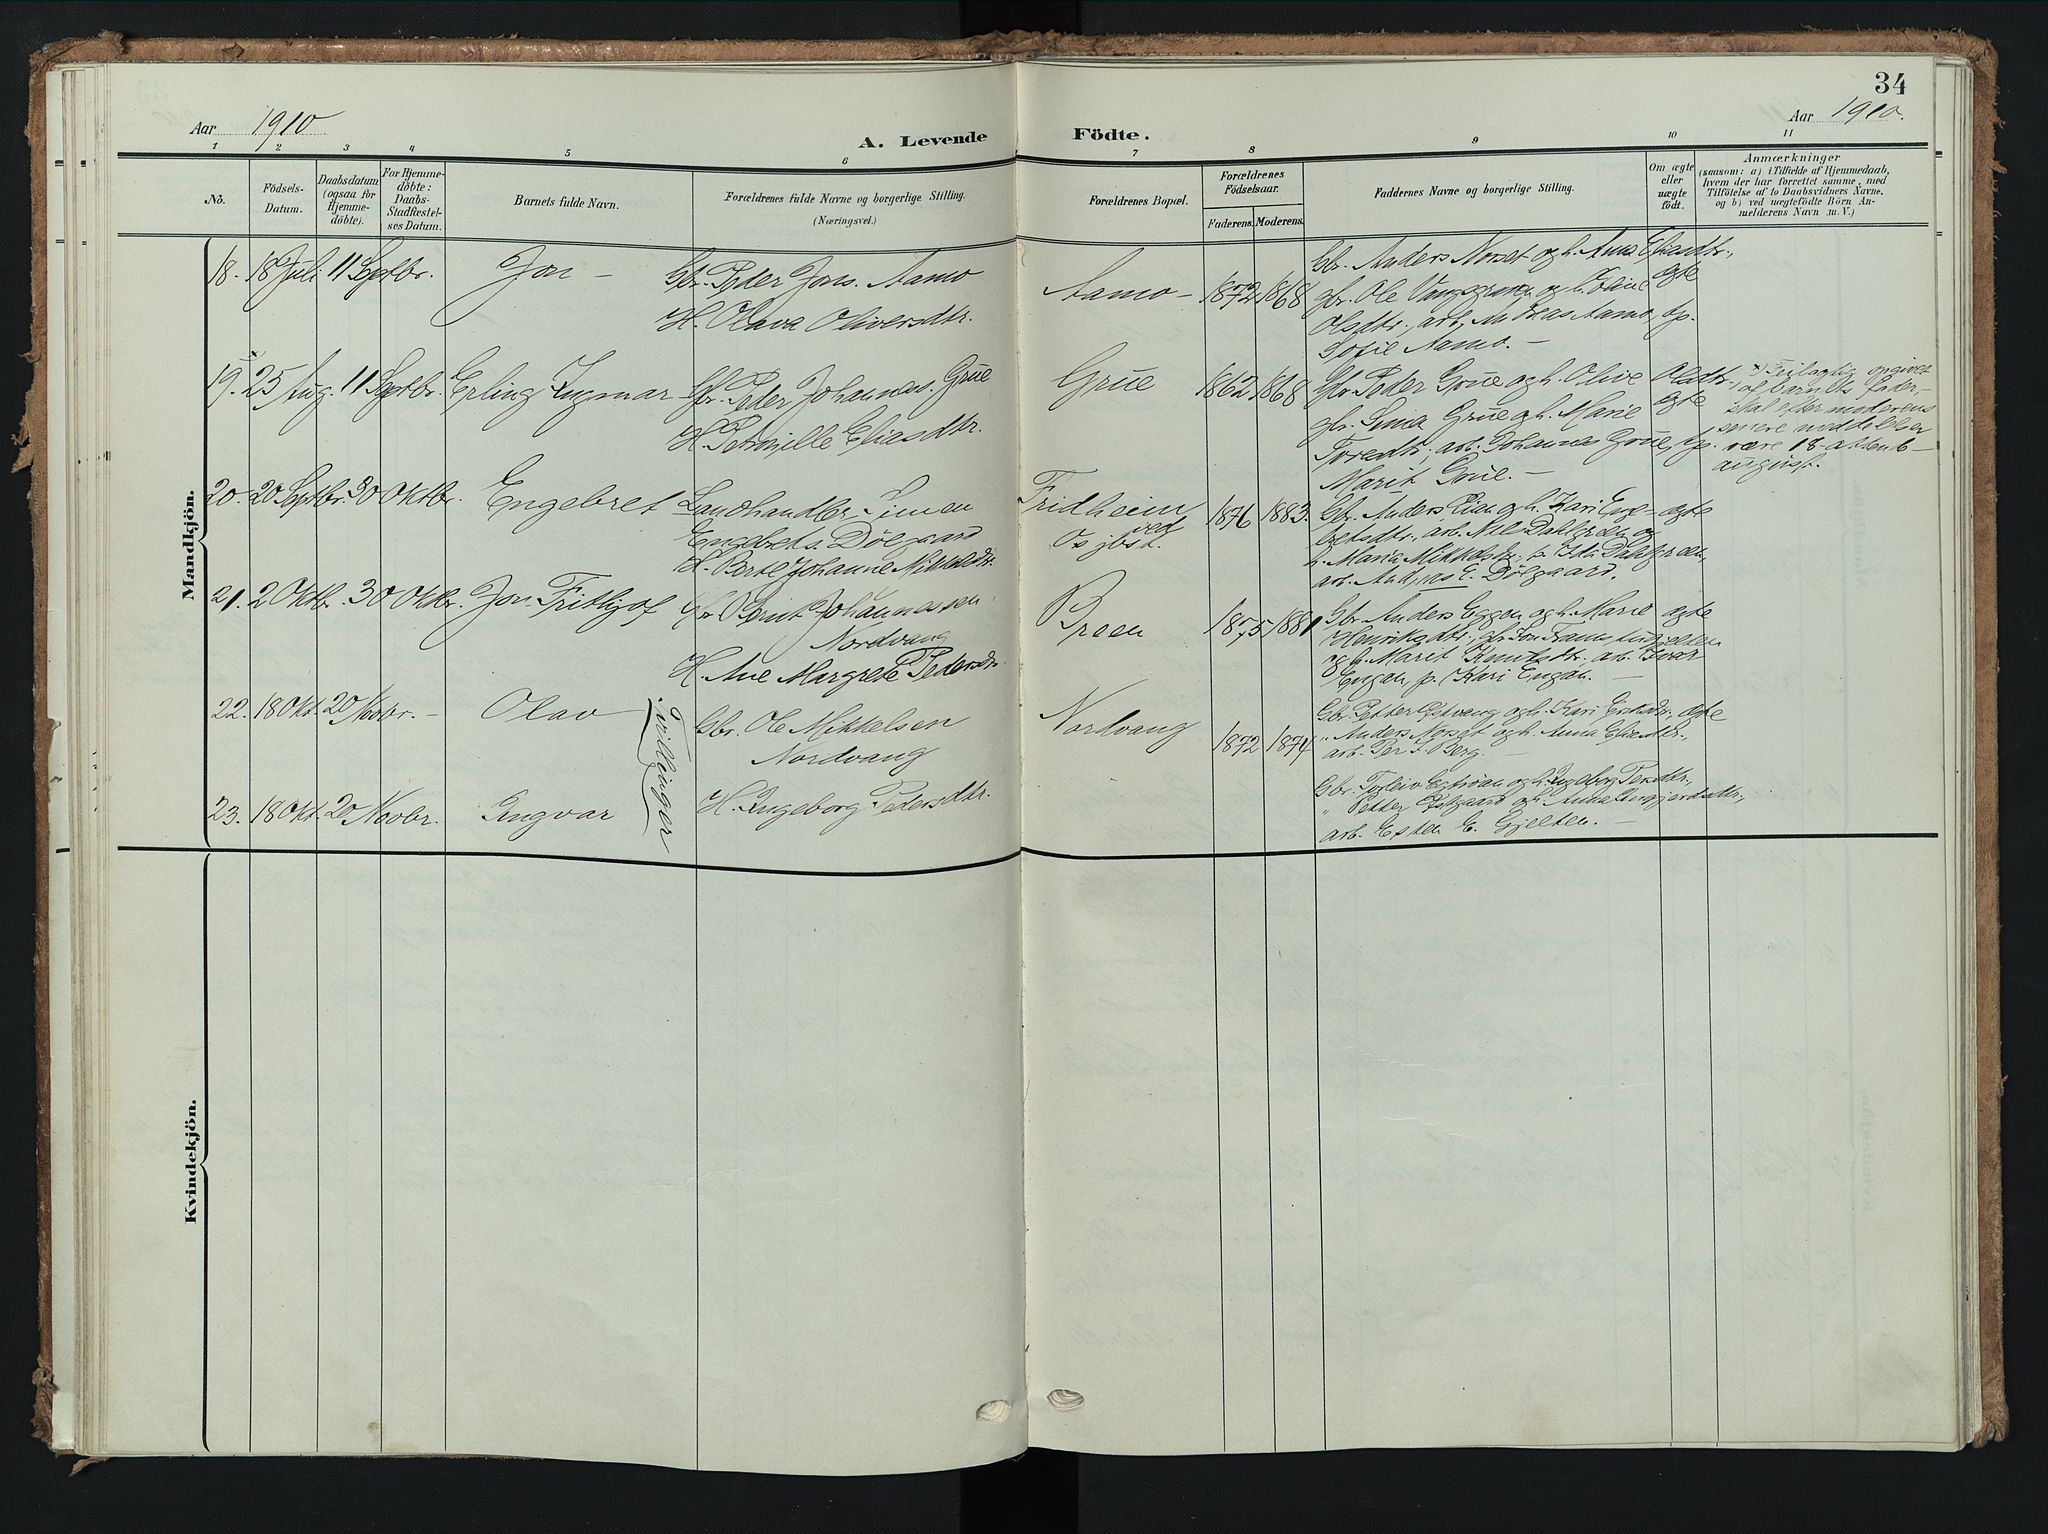 34
Aar 1910
A. Levende Födte.
Aar 1910.
1 2 3 4 5 6 7 8 9 10 11
No.
Födsels-
Datum.
Daabsdatum
(ogsaa for
Hjemme-
döbte).
For Hjemme-
döbte:
Daabs-
Stadfæstel-
ses Datum.
Barnets fulde Navn.
Forældrenes fulde Navne og borgerlige Stilling.
(Næringsvei.)
Forældrenes Bopæl.
Forældrenes
Födselsaar.
Faderens. Moderens.
Faddernes Navne og borgerlige Stilling.
Om ægte
eller
uægte
födt.
Anmærkninger
(saasom: a) i Tilfælde af Hjemmedaab,
hvem der har forrettet samme, med
Tilföielse af to Daabsvidners Navne,
og b) ved uægtefödte Börn An-
melderens Navn m. V.)
Mandkjön.
18. 18 Juli 11 Septbr. Jon -
Gbr. Peder Jons. Aamo
H. Olava Oliversdtr.
Aamo - 1872 1868
Gbr. Anders Norset og h. Anna Eliasdtr.,
gbr. Ole Vangsgraven og h. Eline
Olsdtr., arb. Andreas Aamo, p.
Sofie Aamo. -
ægte
19. 25 Aug. 11 Septbr. Erling Ingmar -
Gbr. Peder Johannes. Grue
H. Petronille Eliasdtr.
Grue 1862 1868
Gbr. Peder Grue og h. Olive Olsdtr.,
gbr. Sima Grue og h. Marie
Toredtr., arb. Johannes Grue, p.
Marit Grue. -
ægte
x) Feilagtig opgivet
af barnets fader,
skal efter moderens
senere meddelelser
være 18 - attende -
august.
20. 20 Septbr. 30 Oktbr. Engebret
Landhandler Simen
Engebrets. Dølgaard
H. Berte Johanne Mikkelsdtr.
Fridheim
ved
Os jbst.
1876 1883.
Gbr. Anders Lian og h. Kari Enge-
bretsdtr., arb. Nils Dahlgreen og
h. Maria Mikkelsdtr. p. Dahlgreen,
arb. Andreas E. Dølgaard.
ægte
21. 2 Oktbr. 30 Oktbr. Jon Frithjof
Gbr. Bernt Johannessen
Nordvang
H. Ane Margrete Pedersdtr.
Breen 1875 1881
Gbr. Anders Eggen og h. Marie
Henriksdtr., gbr. Jon
og h. Marit Knutsdtr. arb. Ivar
Engan, p. Kari Engan. -
ægte
22. 18 Okt. 20 Novbr. - Olav
Tvillinger
Gbr. Ole Mikkelsen
Nordvang
Nordvang 1872 1874
Gbr. Petter Estvang og h. Kari Ersdtr.,
" Anders Norset og h. Anna Eliasdtr.,
arb. Per J. Berg. -
ægte
23. 18 Okt. 20 Novbr. Engvar
H. Ingeborg Pedersdtr.
Gbr. Torleiv Estrøan og h. Ingeborg Persdtr.,
" Petter Estgaard og h. Anna Ingjerdsdtr.,
arb. Esten E. Gjelten. -
Kvindekjön.